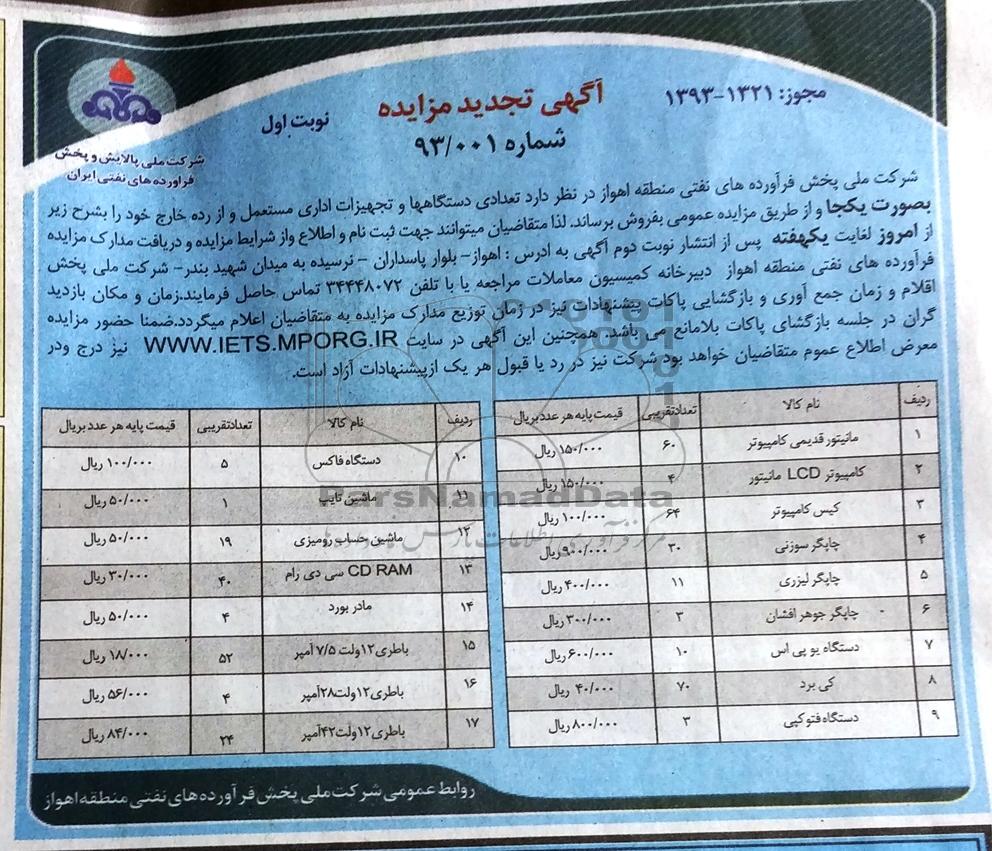 مجوز: ۱۳۲۱-۱۳۹۳
آگهی تجدید مزایده
نوبت اول
شماره ۹۳/۰۰۱
شرکت ملی پالایش و پخش
فرآورده های نفتی ایران
شرکت ملی پخش فرآورده های نفتی منطقه اهواز در نظر دارد تعدادی دستگاهها و تجهیزات اداری مستعمل و از رده خارج خود را بشرح زیر
بصورت یکجا و از طریق مزایده عمومی بفروش برساند. لذا متقاضیان میتوانند جهت ثبت نام و اطلاع واز شرایط مزایده و دریافت مدارک مزایده
از امروز لغایت یکهفته پس از انتشار نوبت دوم آگهی به ادرس : اهواز- بلوار پاسداران - نرسیده به میدان شهید بندر- شرکت ملی پخش
فرآورده های نفتی منطقه اهواز دبیرخانه کمیسیون معاملات مراجعه یا با تلفن ۳۴۴۴۸۰۷۲ تماس حاصل فرمایند.زمان و مکان بازدید
اقلام و زمان جمع آوری و بازگشایی پاکات پیشنهادات نیز در زمان توزیع مدارک مزایده به متقاضیان اعلام میگردد.ضمنا حضور مزایده
گران در جلسه بازگشای پاکات بلامانع می باشد. همچنین این آگهی در سایت WWW.IETS.MPORG.IR نیز درج ودر
معرض اطلاع عموم متقاضیان خواهد بود شرکت نیز در رد یا قبول هر یک ازپیشنهادات آزاد است.
ردیف نام کالا تعدادتقریبی قیمت پایه هر عدد بریال
۱ مانیتور قدیمی کامپیوتر ۶۰ ۱۵۰/۰۰۰ ریال
۲ کامپیوتر LCD مانیتور ۴ ۱۵۰/۰۰۰ ریال
۳ کیس کامپیوتر ۶۴ ۱۰۰/۰۰۰ ریال
۴ چاپگر سوزنی ۳۰ ۹۰۰/۰۰۰ ریال
۵ چاپگر لیزری ۱۱ ۴۰۰/۰۰۰ ریال
۶ چاپگر جوهر افشان ۳ ۳۰۰/۰۰۰ ریال
۷ دستگاه یو پی اس ۱۰ ۶۰۰/۰۰۰ ریال
۸ کی برد ۷۰ ۴۰/۰۰۰ ریال
۹ دستگاه فتوکپی ۳ ۸۰۰/۰۰۰ ریال
ردیف نام کالا تعدادتقریبی قیمت پایه هر عدد بریال
۱۰ دستگاه فاکس ۵ ۱۰۰/۰۰۰ ریال
۱۱ ماشین تایپ ۱ ۵۰/۰۰۰ ریال
۱۲ ماشین حساب رومیزی ۱۹ ۵۰/۰۰۰ ریال
۱۳ CD RAM سی دی رام ۴۰ ۳۰/۰۰۰ ریال
۱۴ مادر بورد ۴ ۵۰/۰۰۰ ریال
۱۵ باطری۱۲ولت ۷/۵ آمپر ۵۲ ۱۸/۰۰۰ ریال
۱۶ باطری۱۲ولت۲۸آمپر ۴ ۵۶/۰۰۰ ریال
۱۷ باطری۱۲ولت۴۲آمپر ۲۴ ۸۴/۰۰۰ ریال
ParsNamadData
روابط عمومی شرکت ملی پخش فرآورده های نفتی منطقه اهواز